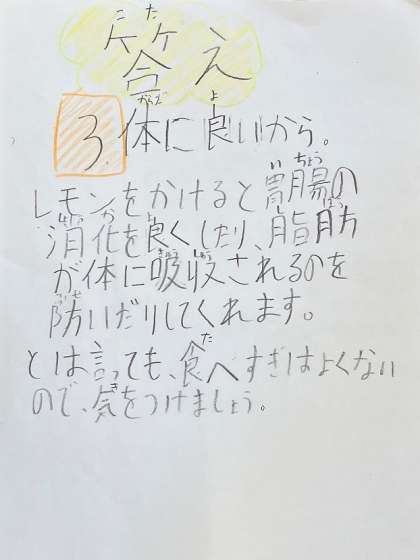 答え
3 体に良いから。
レモンをかけると胃腸の
消化を良くしたり、脂肪
が体に吸収されるのを
防いだりしてくれます。
とは言っても、食べすぎはよくない
ので、気をつけましょう。